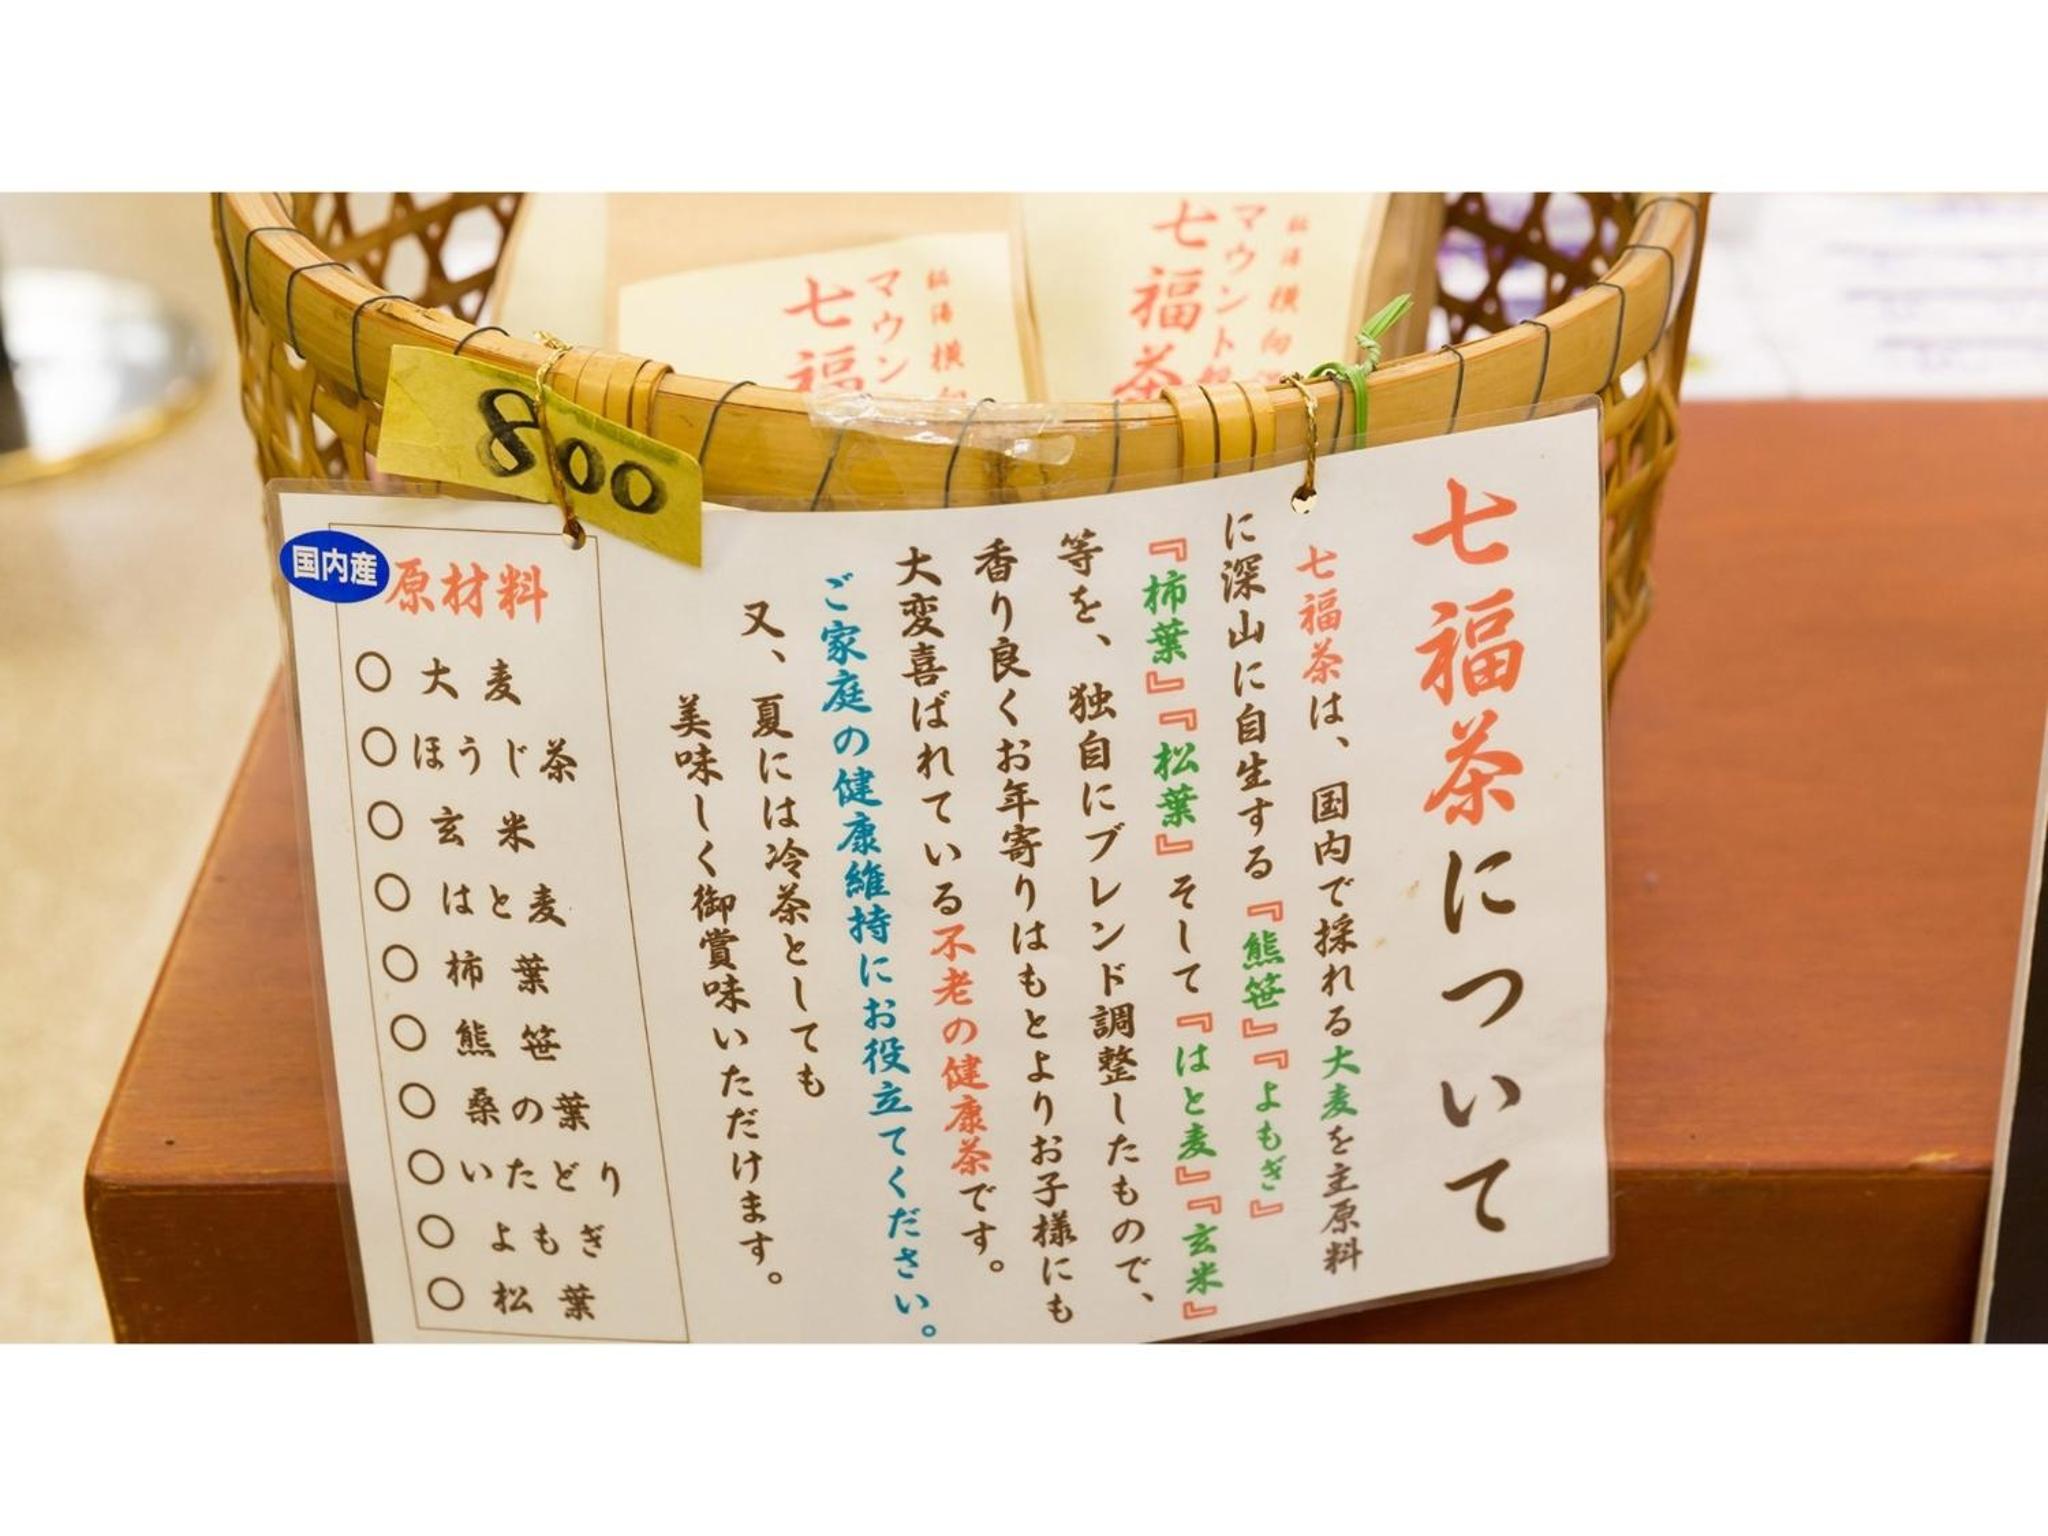 七福茶について
七福茶は、国内で採れる大麦を主原料
に深山に自生する『熊笹』『よもぎ』
『柿葉』『松葉』そして『はと麦』『玄米』
等を、独自にブレンド調整したもので、
香り良くお年寄りはもとよりお子様にも
大変喜ばれている不老の健康茶です。
ご家庭の健康維持にお役立てください。
又、夏には冷茶としても
美味しく御賞味いただけます。
国内産
原材料
○大麦
○ほうじ茶
○玄米
○はと麦
○柿葉
○熊笹
○桑の葉
○いたどり
○よもぎ
○松葉
800
横向
マウント
七福茶
横向
マウン
七福